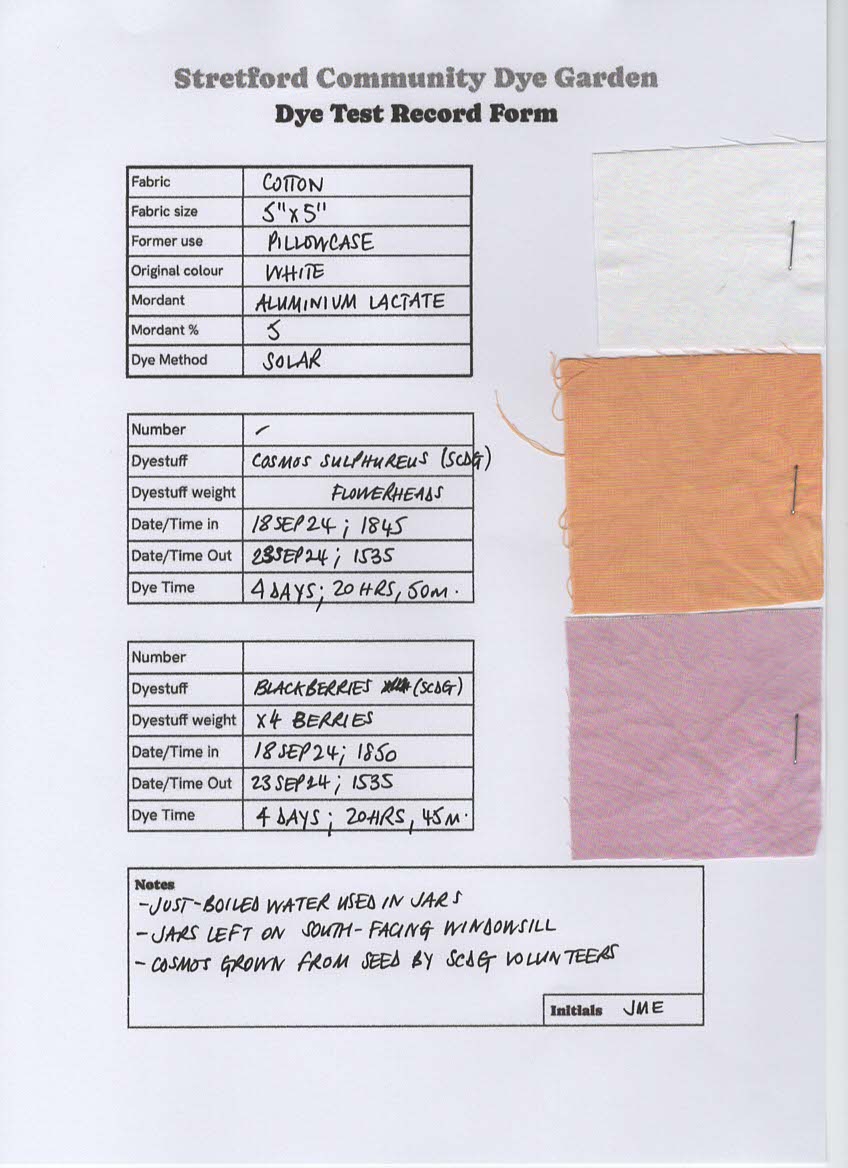 Stretford Community Dye Garden
Dye Test Record Form
Fabric COTTON
Fabric size 5"x5"
Former use PILLOWCASE
Original colour WHITE
Mordant ALUMINIUM LACTATE
Mordant % 5
Dye Method SOLAR
Number
Dyestuff COSMOS SULPHUREUS (SCDG)
Dyestuff weight FLOWERHEADS
Date/Time in 18 SEP 24; 1845
Date/Time Out 23 SEP 24; 1535
Dye Time 4 DAYS; 20 HRS, 50M.
Number
Dyestuff BLACKBERRIES (SCDG)
Dyestuff weight x4 BERRIES
Date/Time in 18 SEP 24; 1850
Date/Time Out 23 SEP 24; 1535
Dye Time 4 DAYS; 20HRS, 45M.
Notes
-JUST-BOILED WATER USED IN JARS
-JARS LEFT ON SOUTH-FACING WINDOWSILL
-COSMOS GROWN FROM SEED BY SCDG VOLUNTEERS
Initials JME